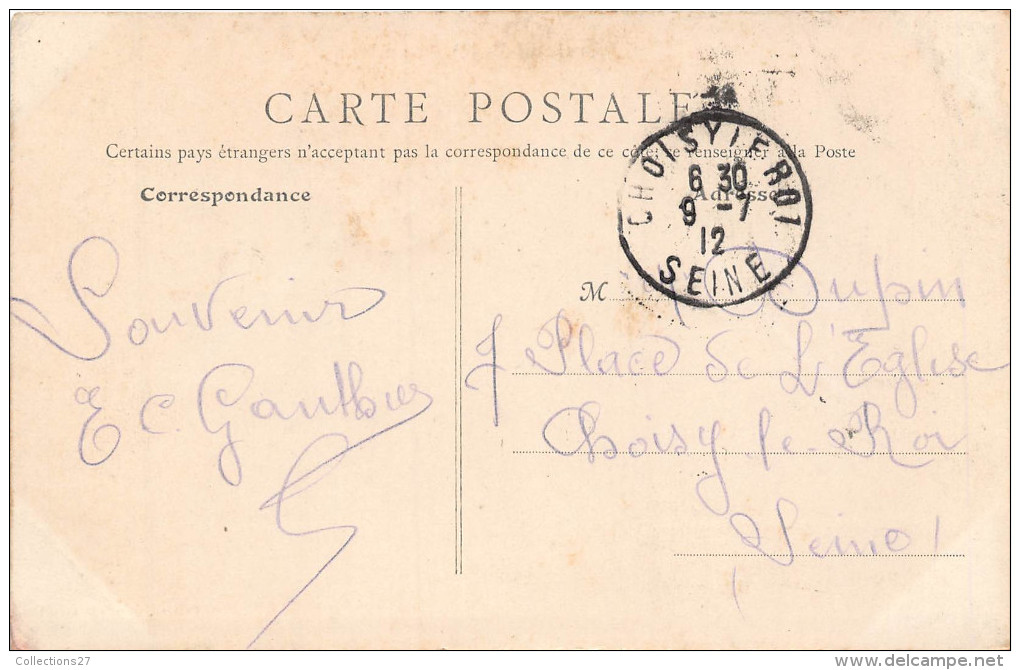 CARTE POSTALE
Certains pays étrangers n'acceptant pas la correspondance de ce côté, se renseigner à la Poste
Correspondance
Adresse
CHOISY LE ROI
6 30
9 -7
12
SEINE
Souvenir
E C. Gauthier
M Dupin
7 Place de L'Eglise
Choisy-le-Roi
(Seine)
Collections27
www.delcampe.net